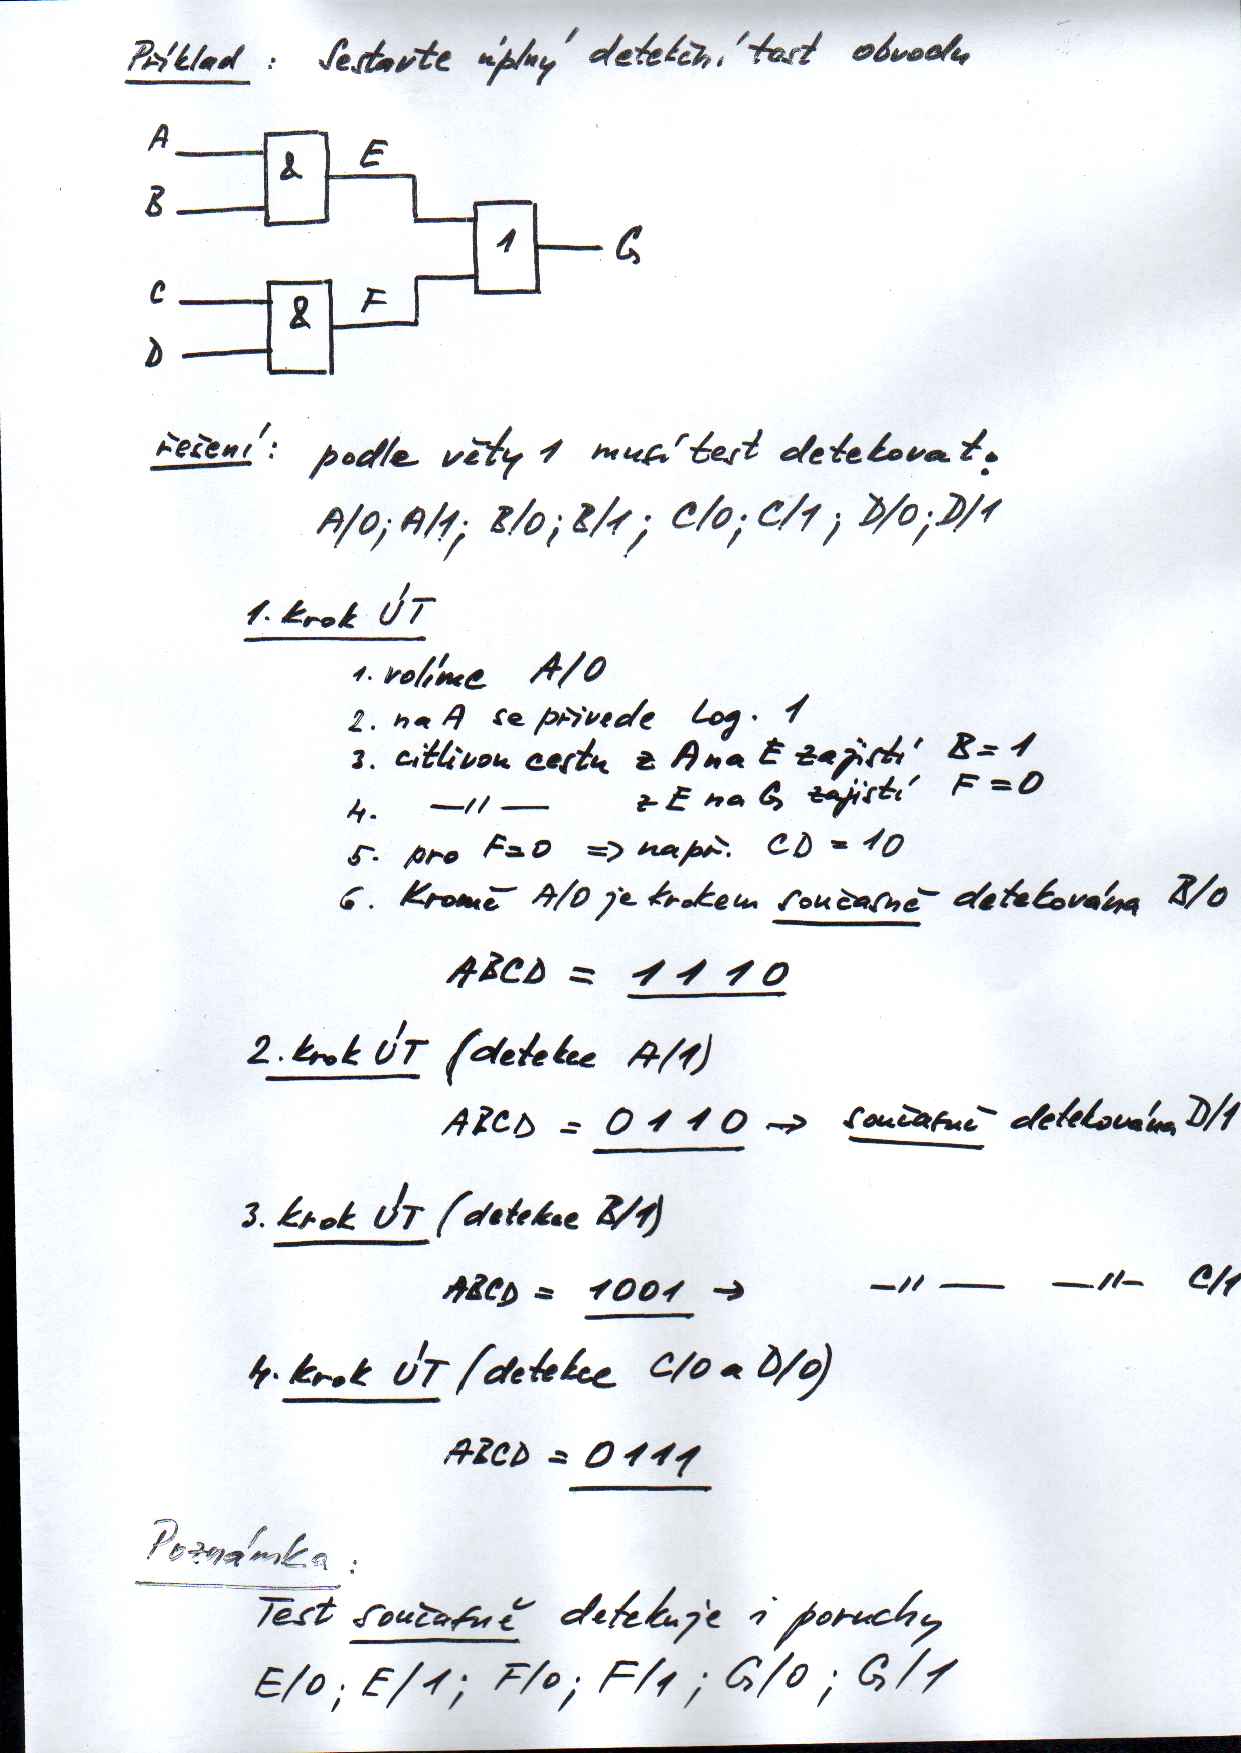 Příklad : Sestavte úplný detekční test obvodu
A
&
E
B
1
G
C
&
F
D
řešení: podle věty 1 musí test detekovat:
A/0; A/1; B/0; B/1; C/0; C/1; D/0; D/1
1. krok ÚT
1. volíme A/0
2. na A se přivede log. 1
3. citlivou cestu z A na E zajistí B = 1
4. —〃— z E na G zajistí F = 0
5. pro F=0 => např. CD = 10
6. Kromě A/0 je krokem současně detekována B/0
ABCD = 1 1 1 0
2. krok ÚT (detekce A/1)
ABCD = 0 1 1 0 → současně detekována D/1
3. krok ÚT (detekce B/1)
ABCD = 1001 → —〃— —〃— C/1
4. krok ÚT (detekce C/0 a D/0)
ABCD = 0111
Poznámka :
Test současně detekuje i poruchy
E/0; E/1; F/0; F/1; G/0; G/1